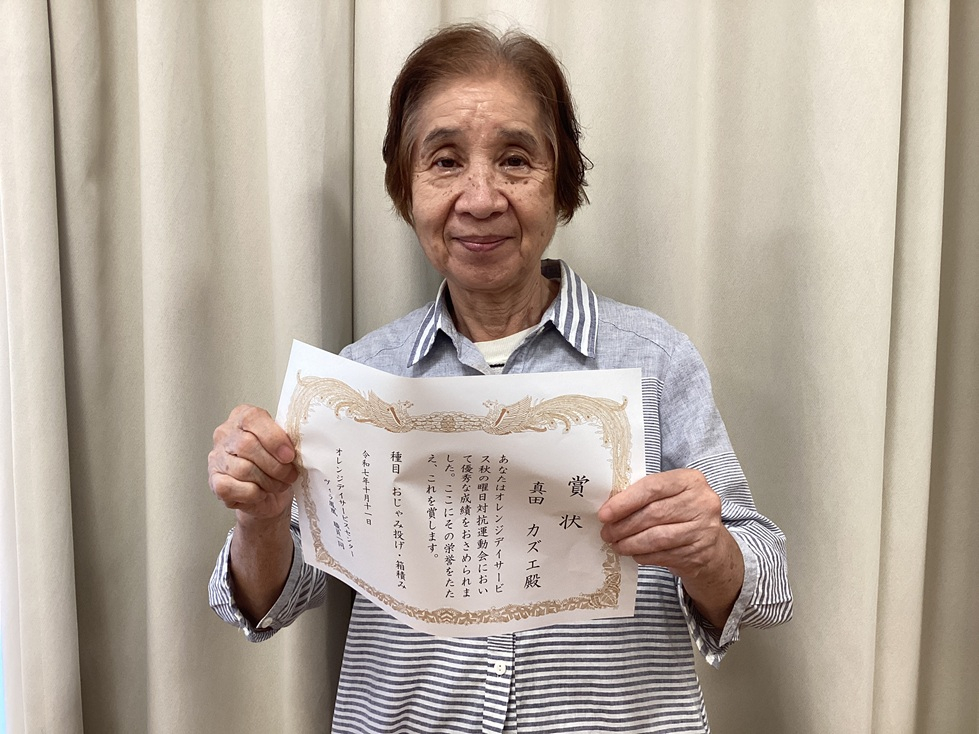 賞状
真田 カズエ殿
あなたはオレンジデイサービ
ス秋の曜日対抗運動会におい
て優秀な成績をおさめられま
した。ここにその栄誉をたた
え、これを賞します。
種目 おじゃみ投げ・箱積み
令和七年十月十一日
オレンジデイサービスセンター
職員一同